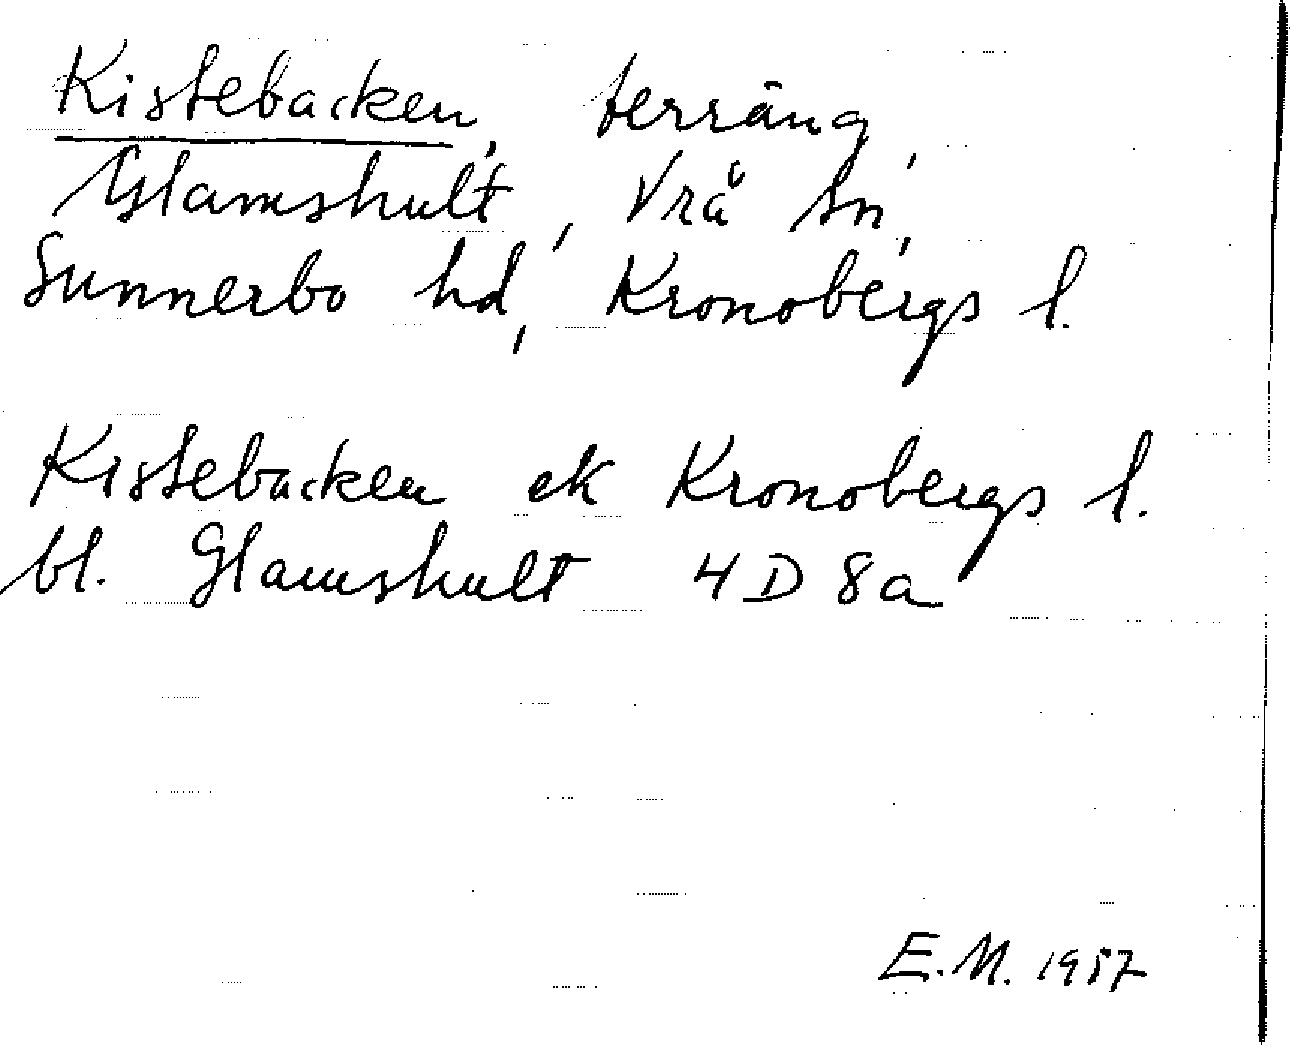 Kistebacken, terräng,
Glamshult, Vrå sn,
Sunnerbo hd, Kronobergs l.
Kistebacken ek Kronobergs l.
bl. Glamshult 4D 8a
E.M. 1957